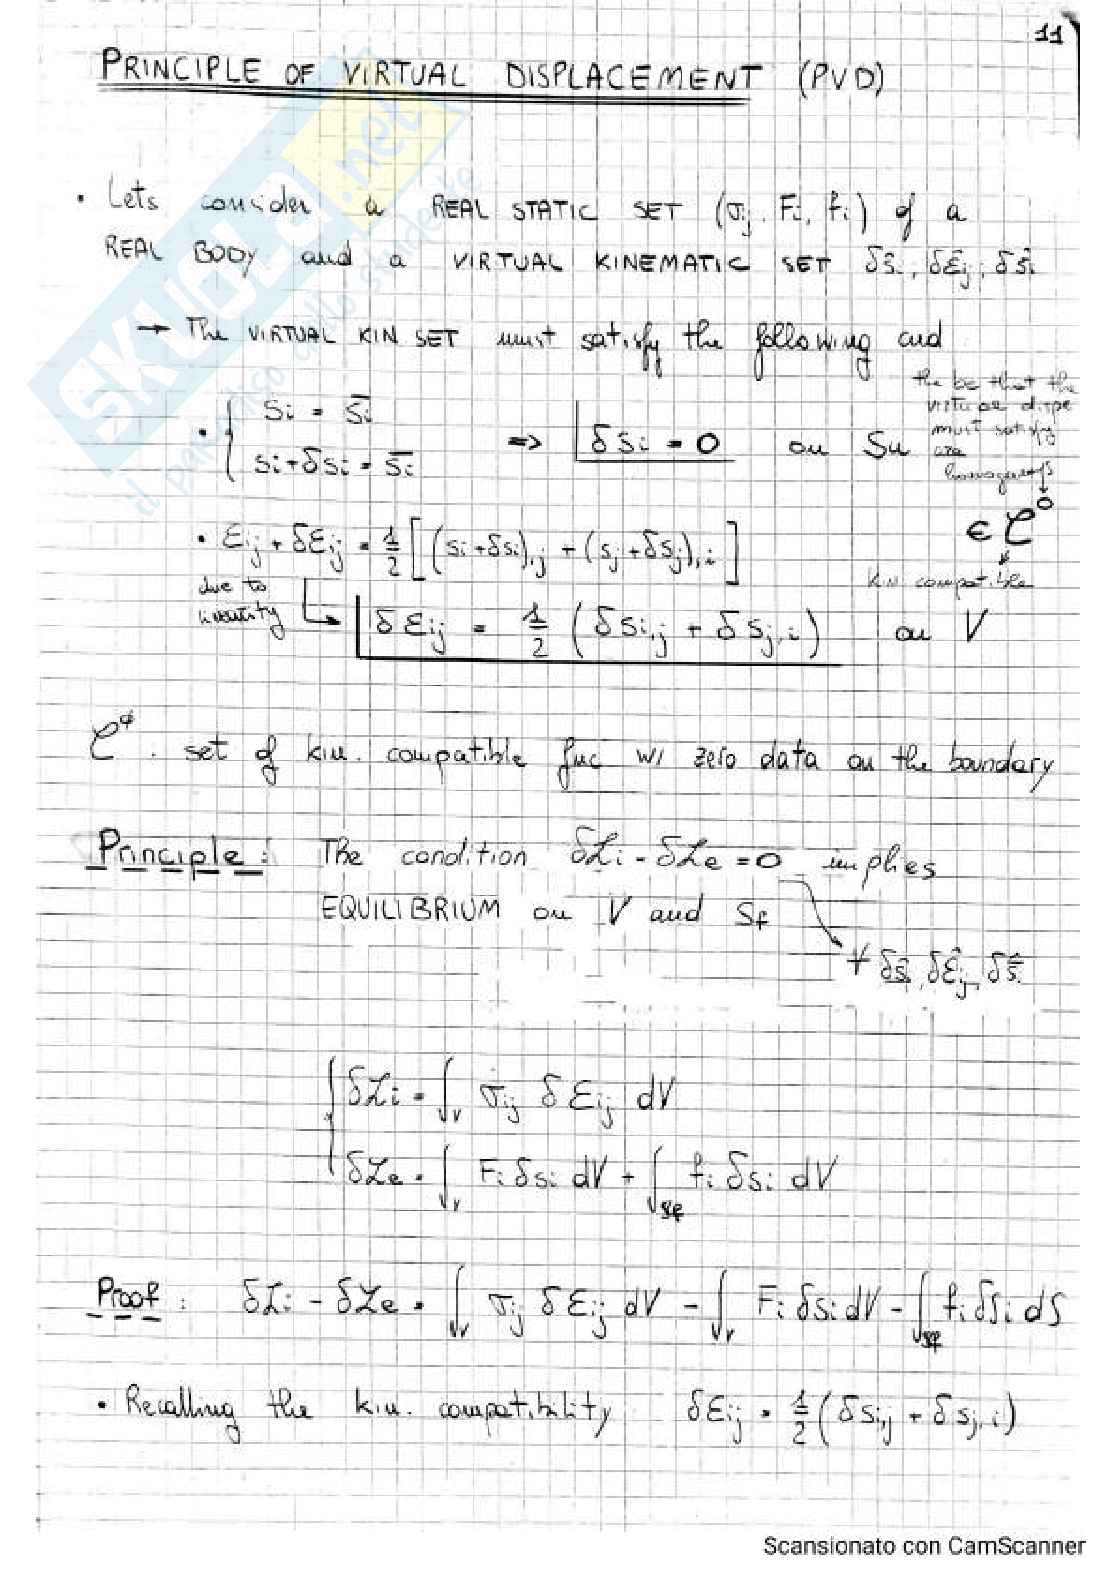 11
PRINCIPLE OF VIRTUAL DISPLACEMENT (PVD)
• Lets consider a REAL STATIC SET (σij, Fi, fi) of a
REAL BODY and a VIRTUAL KINEMATIC SET δŝi, δε̂ij, δŝi
→ The VIRTUAL KIN SET must satisfy the following cnd
the bc that the
virtual dispe
must satisfy
are
homogeneous
• { si = s̄i
si + δsi = s̄i ⇒ δsi = 0 on Su
∈ C⁰
kin compatible
• εij + δεij = 1/2 [(si + δsi),j + (sj + δsj),i]
due to
linearity
δεij = 1/2 (δsi,j + δsj,i) on V
C⁰ : set of kin. compatible fnc w/ zero data on the boundary
Principle: The condition δLi - δLe = 0 implies
EQUILIBRIUM on V and Sf
∀ δŝi, δε̂ij, δŝi
{ δLi = ∫V σij δεij dV
δLe = ∫V Fi δsi dV + ∫Sf fi δsi dV
Proof: δLi - δLe = ∫V σij δεij dV - ∫V Fi δsi dV - ∫Sf fi δsi dS
• Recalling the kin. compatibility δεij = 1/2 (δsi,j + δsj,i)
SKUOLA.net
il paradiso dello studente
Scansionato con CamScanner